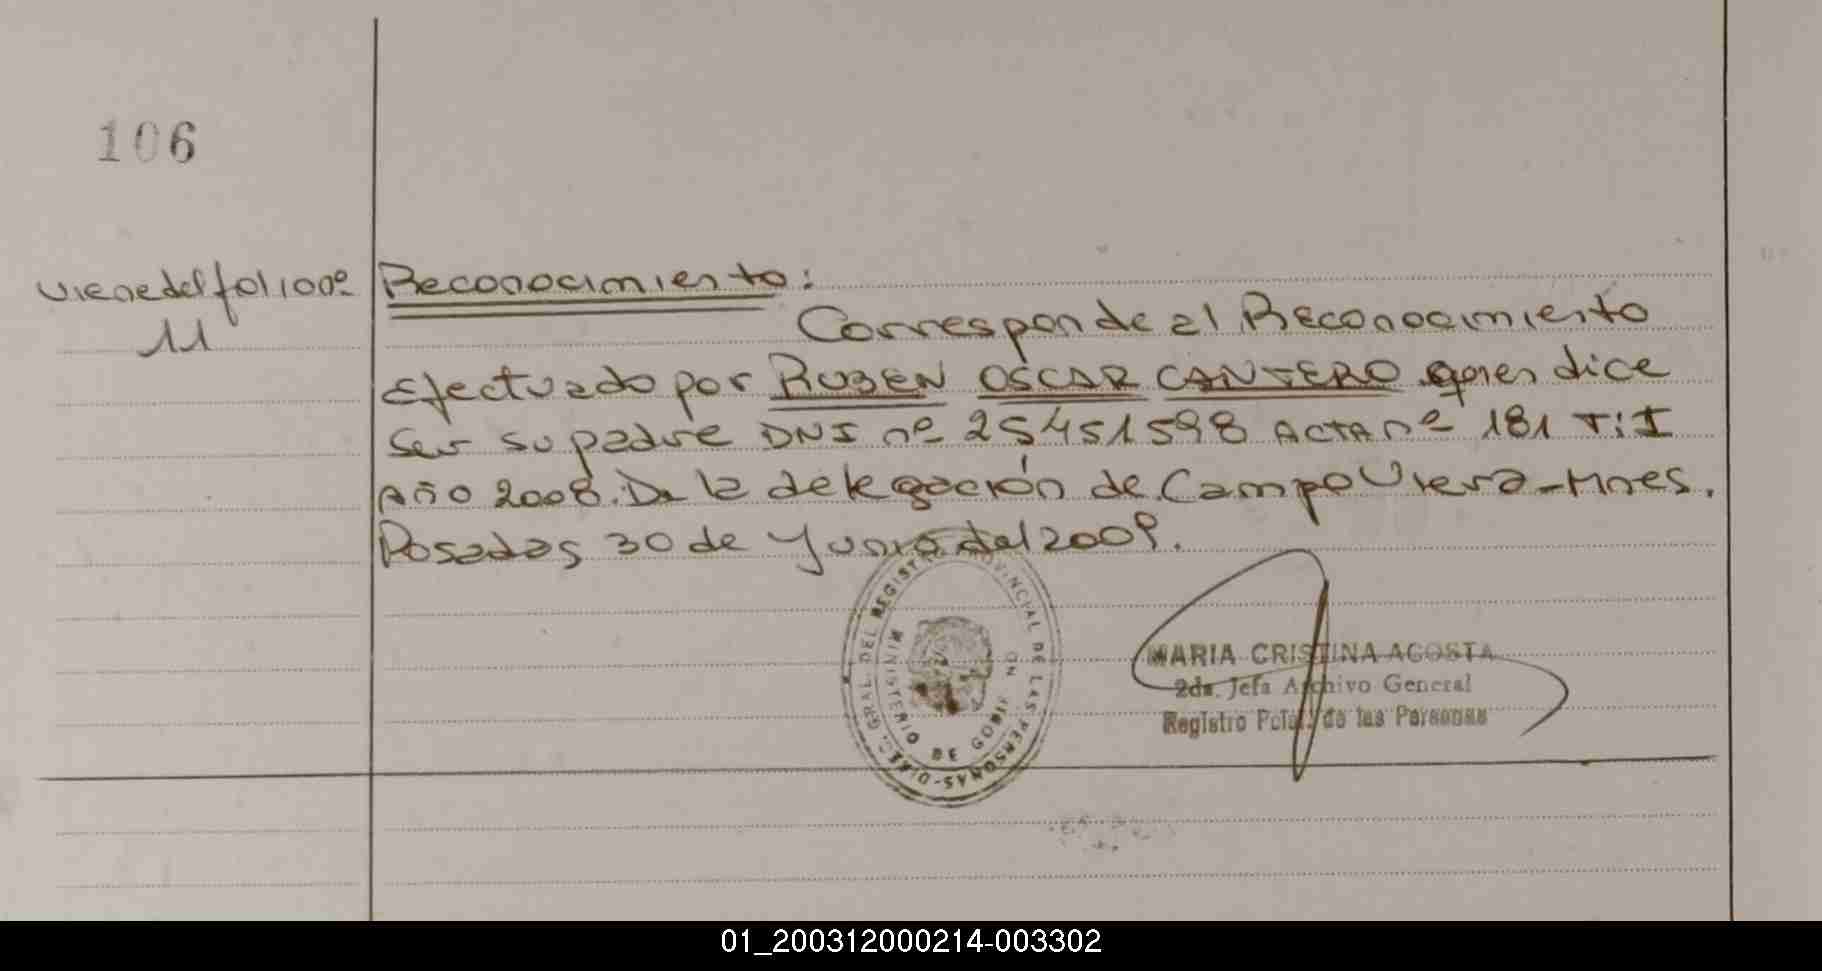 106
viene del folio nº
11
Reconocimiento:
Corresponde al Reconocimiento
efectuado por RUBEN OSCAR CANTERO quien dice
ser su padre DNI nº 25451598 ACTA nº 181 T: I
Año 2008. De la delegación de Campo Viera-Mnes.
Posadas, 30 de Junio del 2009.
DIREC. GRAL. DEL REGISTRO PROVINCIAL DE LAS PERSONAS
MINISTERIO DE GOBIERNO
MARIA CRISTINA ACOSTA
2da. Jefa Archivo General
Registro Pcial. de las Personas
01_200312000214-003302